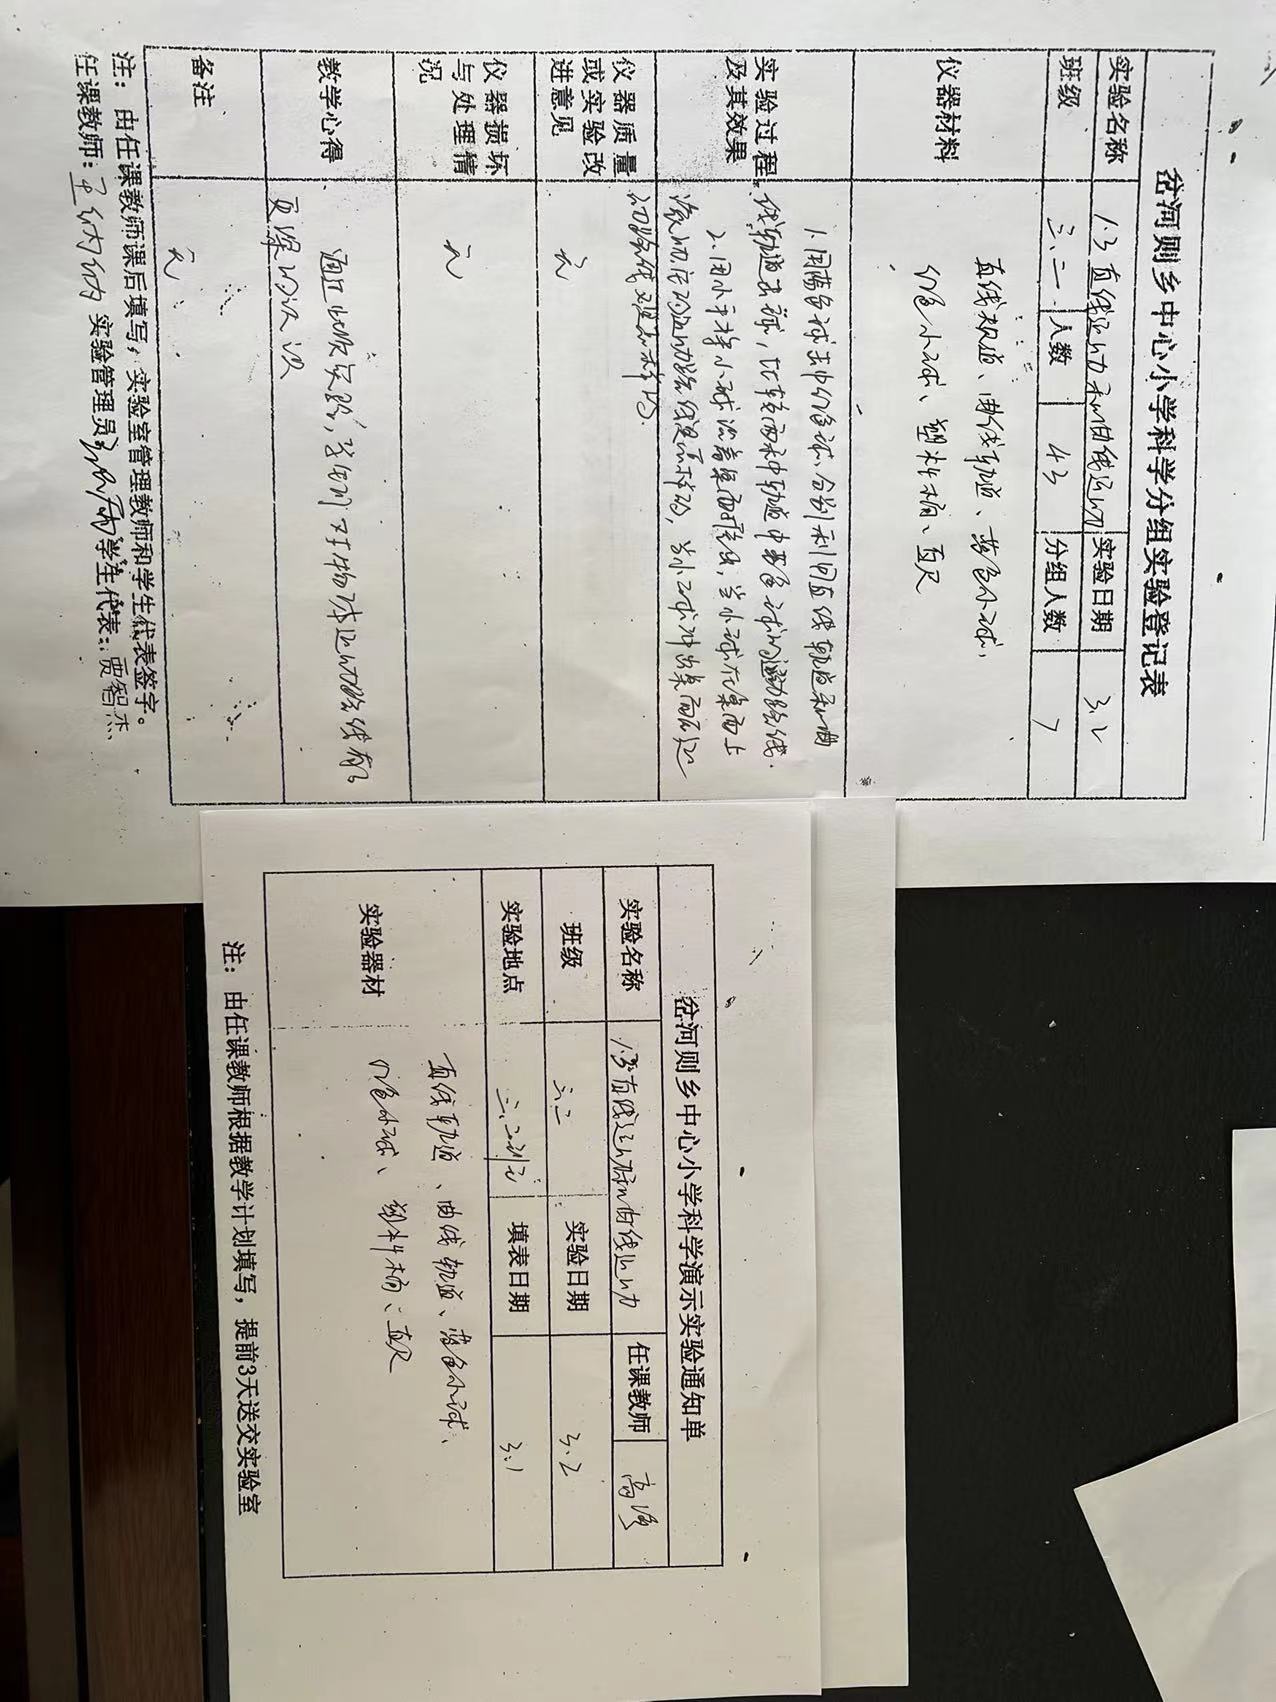 岔河则乡中心小学科学分组实验登记表
实验名称 1.3直线运动和曲线运动 实验日期 3.2
班级 三.二 人数 43 分组人数 7
仪器材料 直线轨道、曲线轨道、蓝色小球、
红色小球、塑料桶、直尺
实验过程及其效果
1.用蓝色球击中红色球,分别利用直线轨道和曲
线轨道击球,比较两种轨道中蓝色球的运动路线.
2.用小手将小球沿着桌面推出,当小球在桌面上
滚动它的运动路线是怎样的,当小球冲出桌面后运
动路线又是怎样的.
仪器质量或实验改进意见 无
仪器损坏与处理情况 无
教学心得 通过此次实验,学生们对于物体运动路线有了
更深的认识
备注 无
注:由任课教师课后填写,实验室管理教师和学生代表签字。
任课教师: 实验管理员: 学生代表:贾智杰
岔河则乡中心小学科学演示实验通知单
实验名称 1.3直线运动和曲线运动 任课教师 高
班级 三.二 实验日期 3.2
实验地点 三.二 填表日期 3.1
实验器材 直线轨道、曲线轨道、蓝色小球、
红色小球、塑料桶、直尺
注:由任课教师根据教学计划填写,提前3天送交实验室